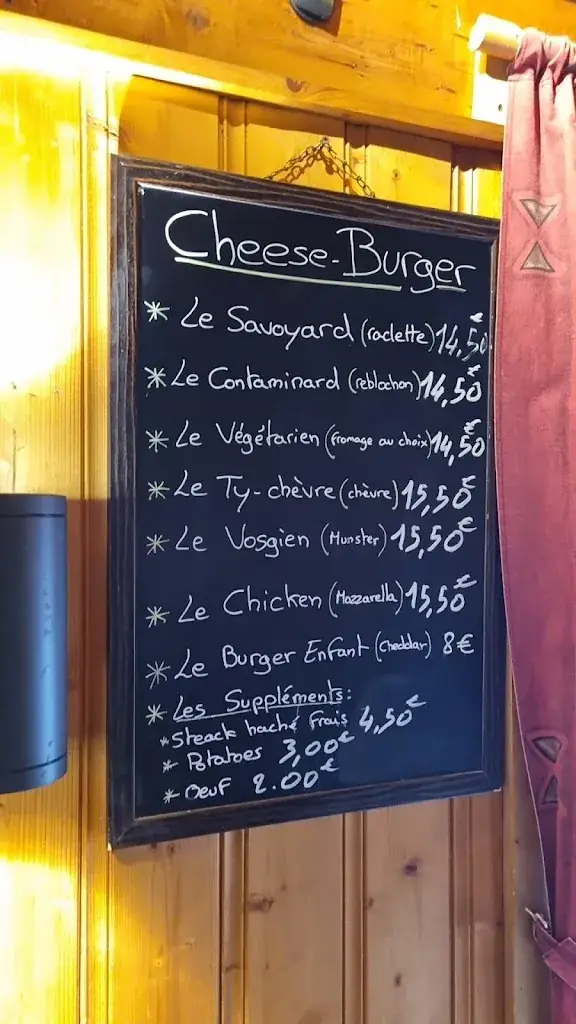 Cheese-Burger
* Le Savoyard (raclette) 14,50€
* Le Contaminard (reblochon) 14,50€
* Le Végétarien (fromage au choix) 14,50€
* Le Ty-chèvre (chèvre) 15,50€
* Le Vosgien (Munster) 15,50€
* Le Chicken (Mozzarella) 15,50€
* Le Burger Enfant (Cheddar) 8€
* Les Suppléments:
* Steack haché frais 4,50€
* Potatoes 3,00€
* Oeuf 2.00€